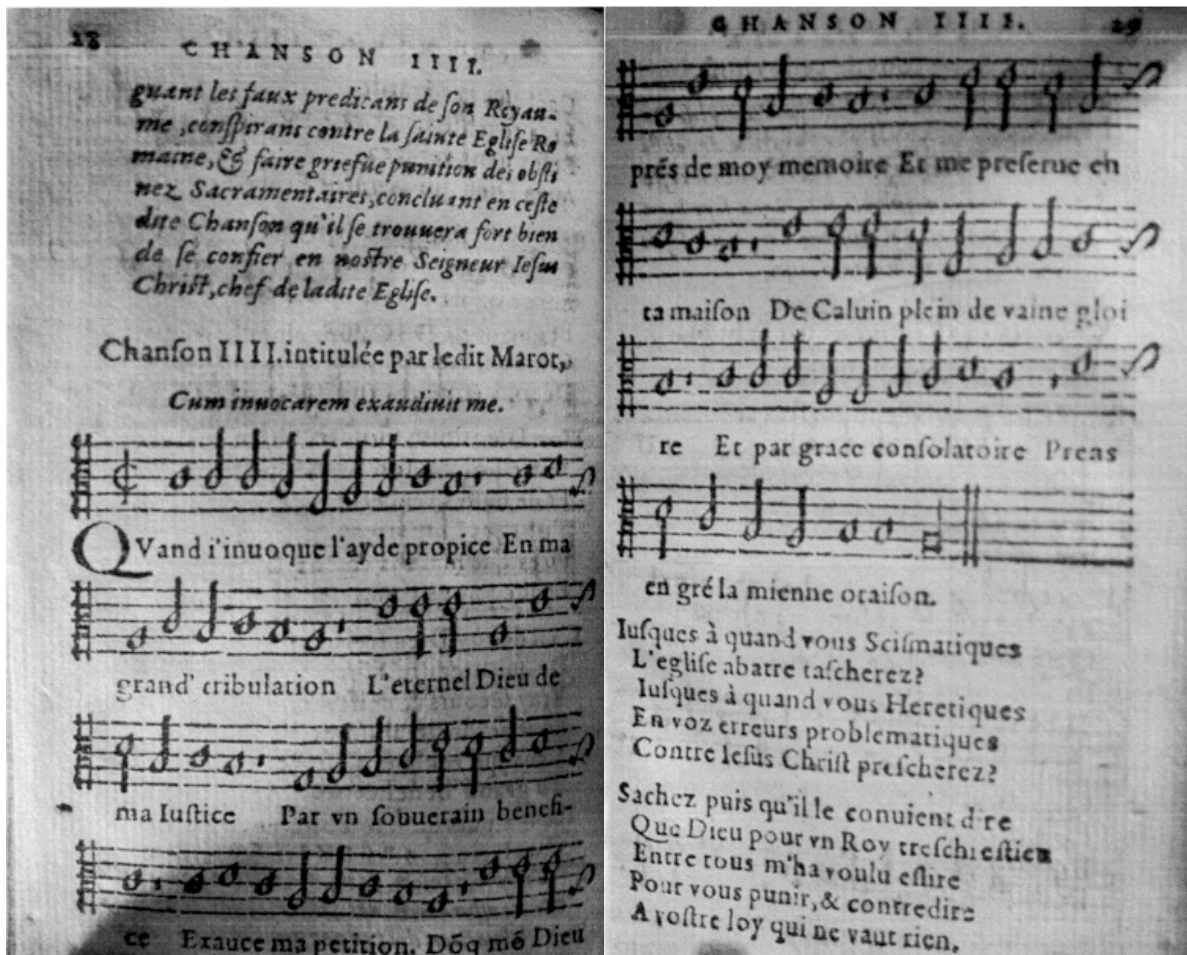 28
CHANSON IIII.
guant les faux predicans de son Royau-
me, conspirans contre la sainte Eglise Ro
maine, & faire griefue punition des obsti
nez Sacramentaires, concluant en ceste
dite Chanson qu'il se trouuera fort bien
de se confier en nostre Seigneur Iesus
Christ, chef de ladite Eglise.
Chanson IIII. intitulée par ledit Marot,
Cum inuocarem exaudiuit me.
QVand i'inuoque l'ayde propice En ma
grand' tribulation L'eternel Dieu de
ma Iustice Par vn souuerain benefi-
ce Exauce ma petition. Dõq mõ Dieu
CHANSON IIII. 29
prés de moy memoire Et me preserue en
ta maison De Caluin plein de vaine gloi
re Et par grace consolatoire Prens
en gré la mienne oraison.
Iusques à quand vous Scismatiques
L'eglise abatre tascherez?
Iusques à quand vous Heretiques
En voz erreurs problematiques
Contre Iesus Christ prescherez?
Sachez puis qu'il le conuient dire
Que Dieu pour vn Roy treschrestien
Entre tous m'ha voulu eslire
Pour vous punir, & contredire
A vostre loy qui ne vaut rien.